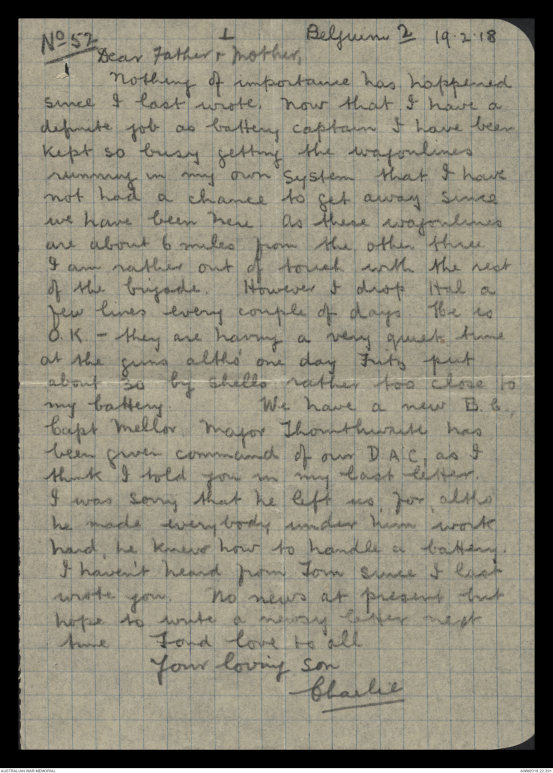 Nº 52 1 Belgium 2 19.2.18
1 Dear Father & Mother,
Nothing of importance has happened
since I last wrote. Now that I have a
definite job as battery captain I have been
kept so busy getting the wagonlines
running in my own system that I have
not had a chance to get away since
we have been here. As these wagonlines
are about 6 miles from the other three
I am rather out of touch with the rest
of the brigade. However I drop Hal a
few lines every couple of days. He is
O.K. - they are having a very quiet time
at the guns altho' one day Fritz put
about 30 by shells rather too close to
my battery. We have a new B.C.,
Capt Mellor. Major Thornthwaite has
been given command of our D.A.C, as I
think I told you in my last letter.
I was sorry that he left us, for, altho'
he made everybody under him work
hard, he knew how to handle a battery.
I haven't heard from Tom since I last
wrote you. No news at present but
hope to write a newsy letter next
time Fond love to all
Your loving son
Charlie
AUSTRALIAN WAR MEMORIAL